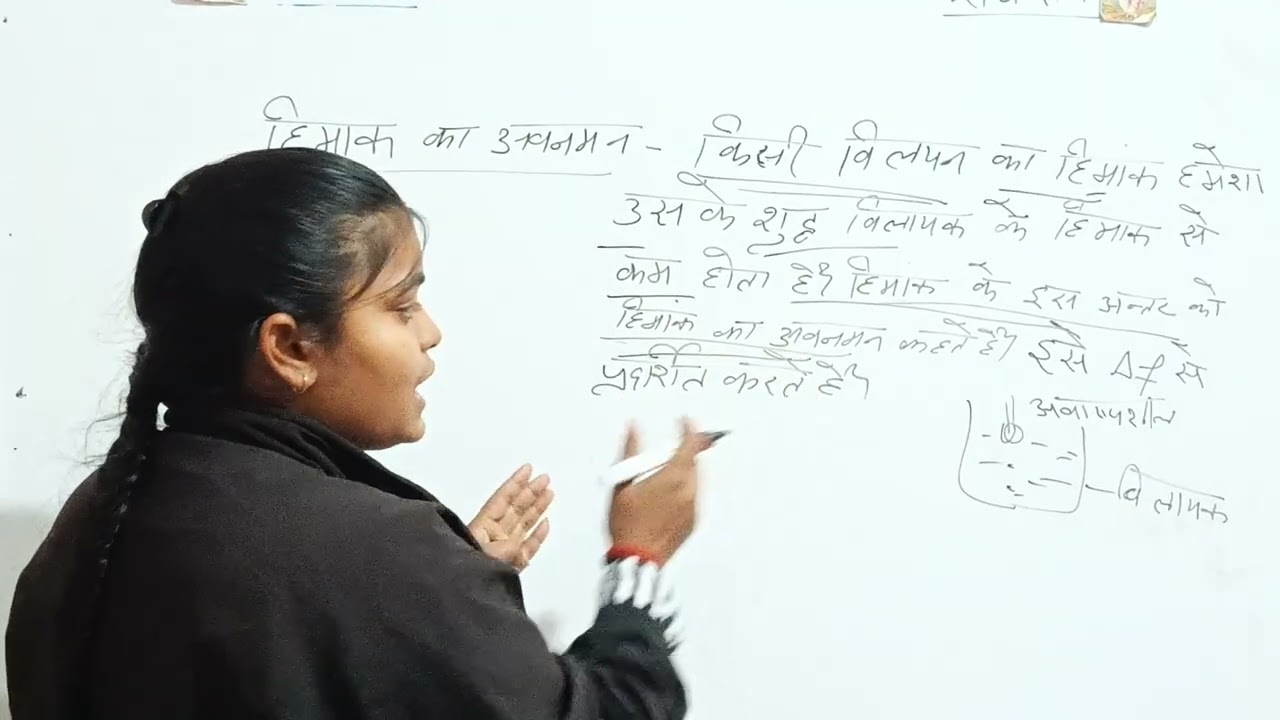 हिमांक का अवनमन - किसी विलयन का हिमांक हमेशा
उस के शुद्ध विलायक के हिमांक से
कम होता है। हिमांक के इस अन्तर को
हिमांक का अवनमन कहते है। इसे Δf से
प्रदर्शित करते है।
अवाष्पशील
विलायक